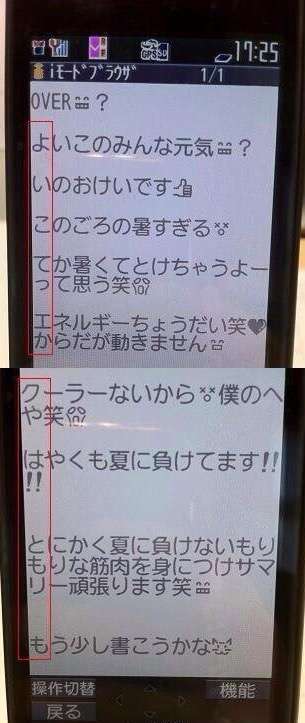 17:25
iモードブラウザ 1/1
OVER?
よいこのみんな元気?
いのおけいです
このごろの暑すぎる
てか暑くてとけちゃうよー
って思う笑
エネルギーちょうだい笑
からだが動きません
クーラーないから僕のへ
や笑
はやくも夏に負けてます!!
!!
とにかく夏に負けないもり
もりな筋肉を身につけサマ
リー頑張ります笑
もう少し書こうかな
操作切替 機能
戻る